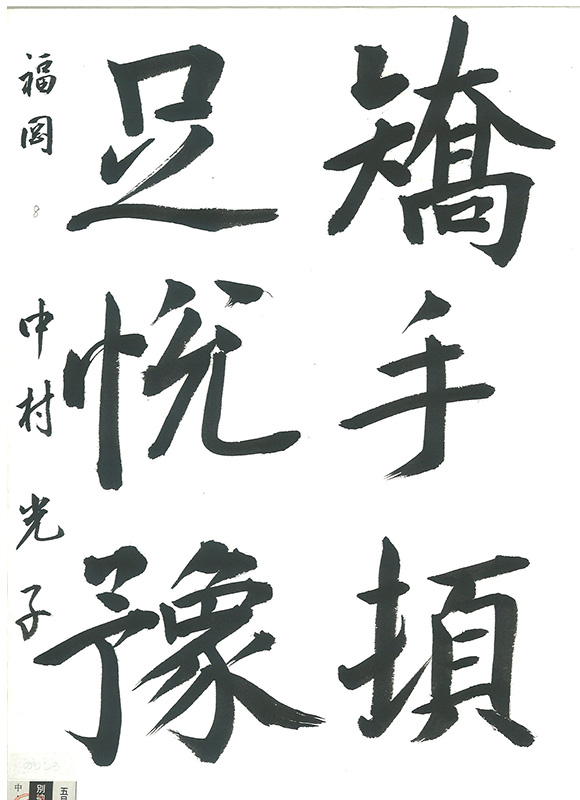 矯手頓
足悦豫
福岡 8 中村光子